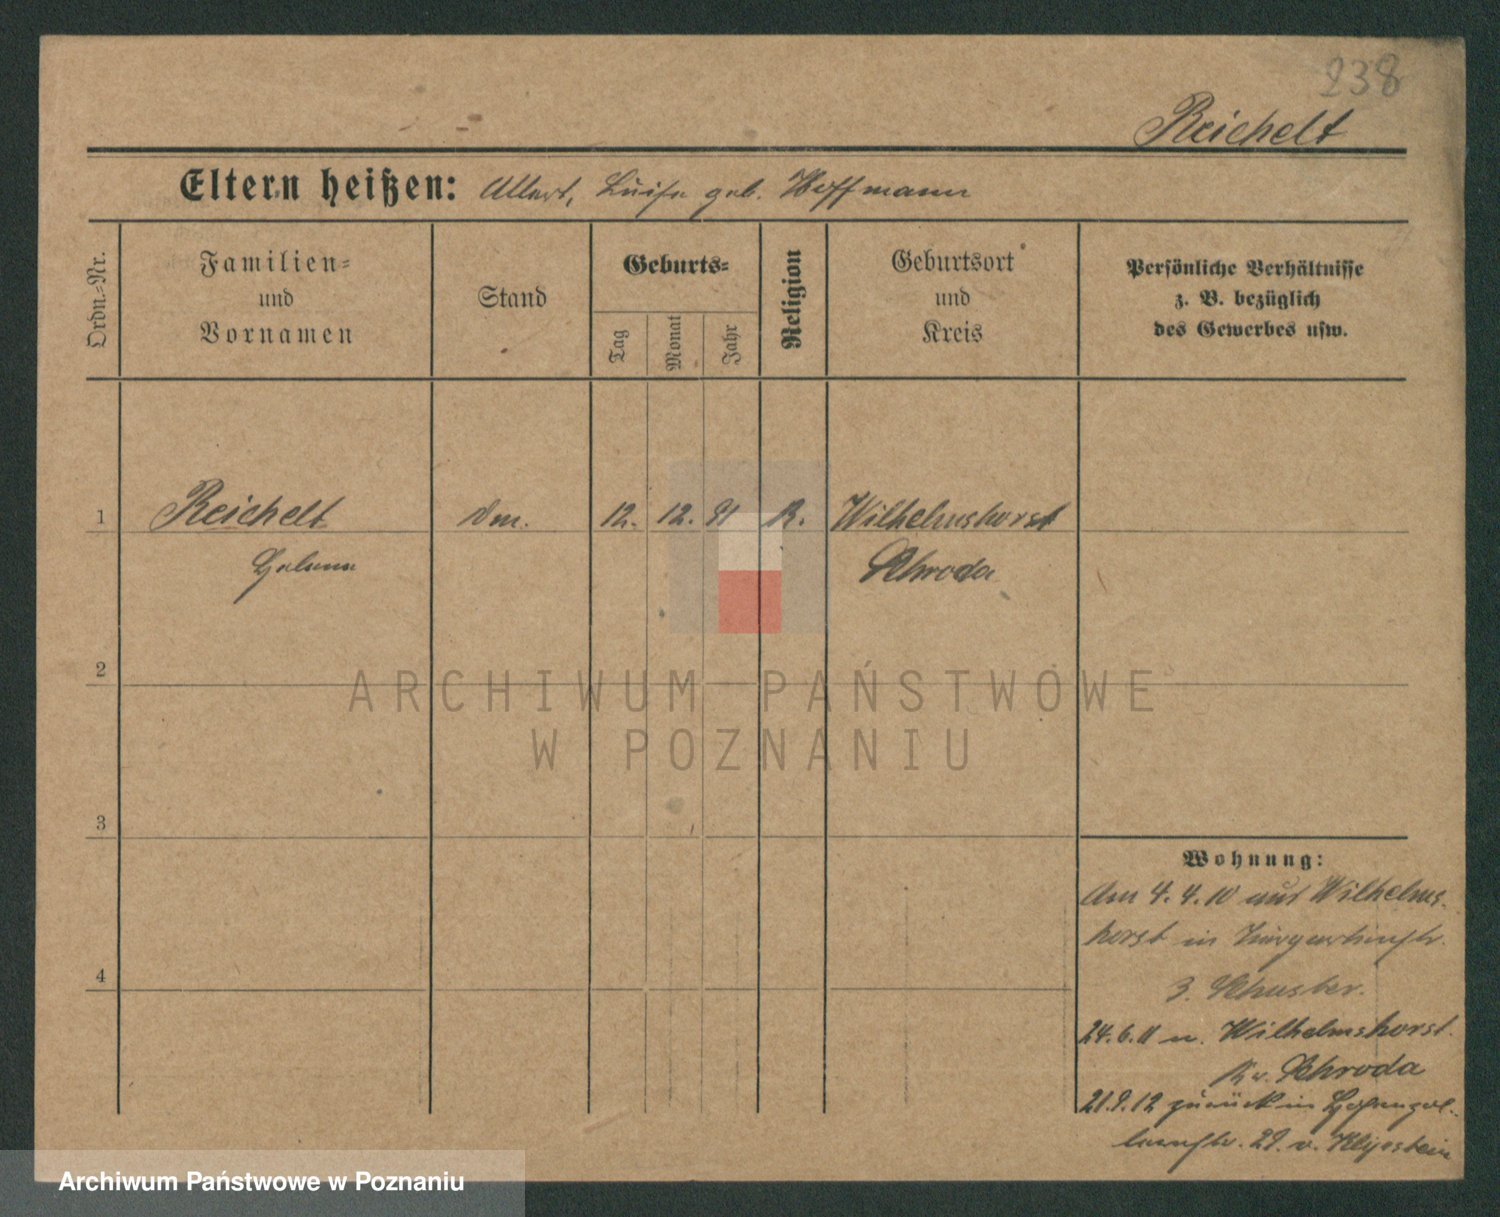 238
Reichelt
Eltern heißen: Albert, Luise geb. Hoffmann
Ordn.-Nr.
Familien-
und
Vornamen
Stand
Geburts-
Tag
Monat
Jahr
Religion
Geburtsort
und
Kreis
Persönliche Verhältnisse
z. B. bezüglich
des Gewerbes usw.
1
Reichelt
12. 12. 91
Wilhelmshorst
Helene
Schroda
2
ARCHIWUM PAŃSTWOWE
W POZNANIU
3
Wohnung:
Am 4.4.10 aus Wilhelms-
horst in
3. Schuster.
4
24.6.11 n. Wilhelmshorst
Kr. Schroda
21.9.12 zurück in Hohenzol-
lernstr. 29. v.
Archiwum Państwowe w Poznaniu